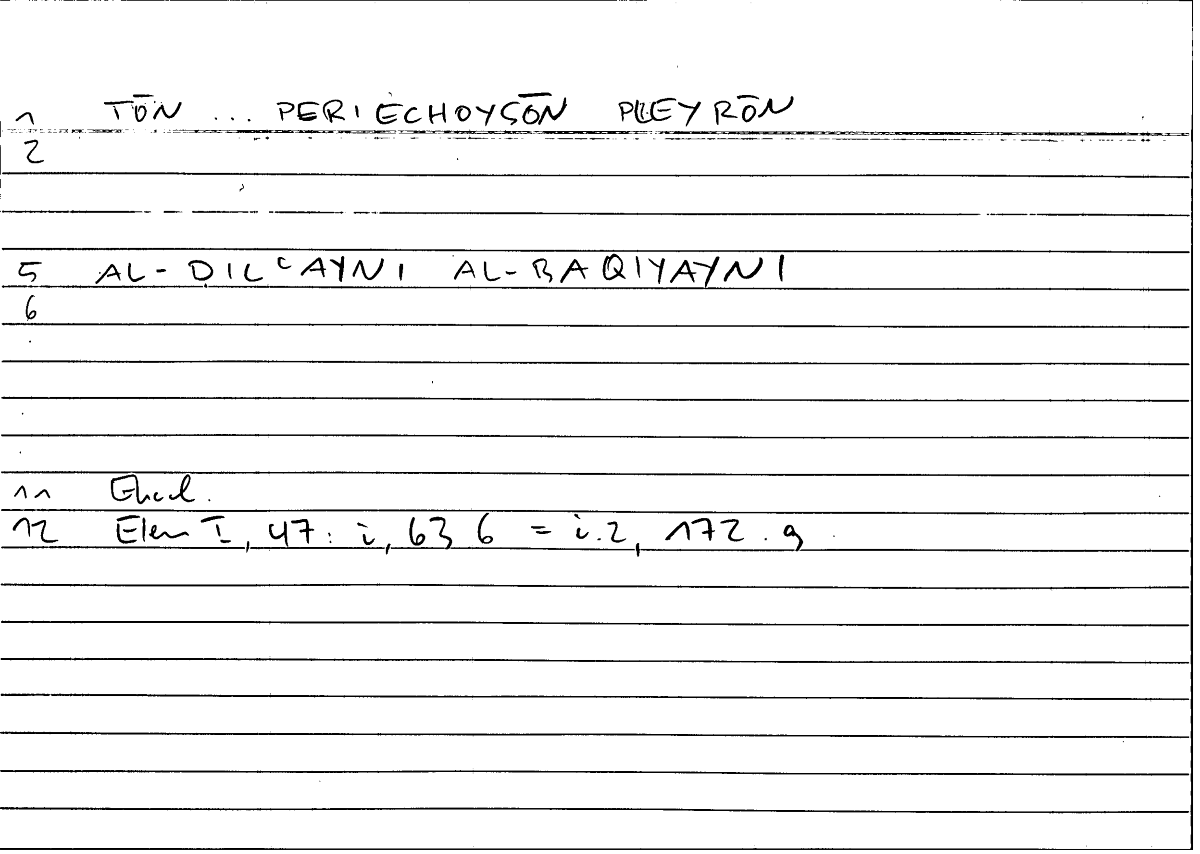 1 TŌN ... PERIECHOYSŌN PLEYRŌN
2
5 AL-DILᶜAYNI AL-BAQIYAYNI
6
11 Eucl.
12 Elem I, 47: i, 63 6 = i.2, 172. 9